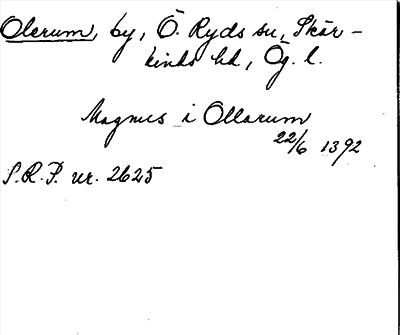 Olerum, by, Ö. Ryds sn, Skär-
kinds hd, Ög. l.
Magnus i Ollarum
22/6 1392
S.R.P. nr. 2625